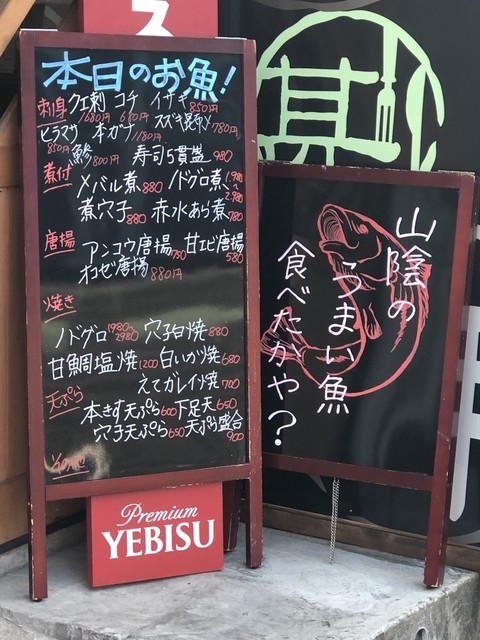 本日のお魚!
刺身 クエ刺 コチ イサキ 850円
1680円 680円 スズキ昆布〆 780円
ヒラマサ 本ガツオ 1180円
850円 鯵 800円 寿司5貫盛 980
煮付 メバル煮 880 ノドグロ煮 1,980〜2,980
煮穴子 880 赤水あら煮 780
唐揚 アンコウ唐揚 750 甘エビ唐揚 580
オコゼ唐揚 880円
焼き
ノドグロ 1980〜2980 穴子白焼 880
甘鯛塩焼 1200 白いか焼 680
えてガレイ焼 700
天ぷら 本きす天ぷら 600 下足天 650
穴子天ぷら 650 天ぷら盛合 900
Premium
YEBISU
山陰の
うまい魚
食べたかや?